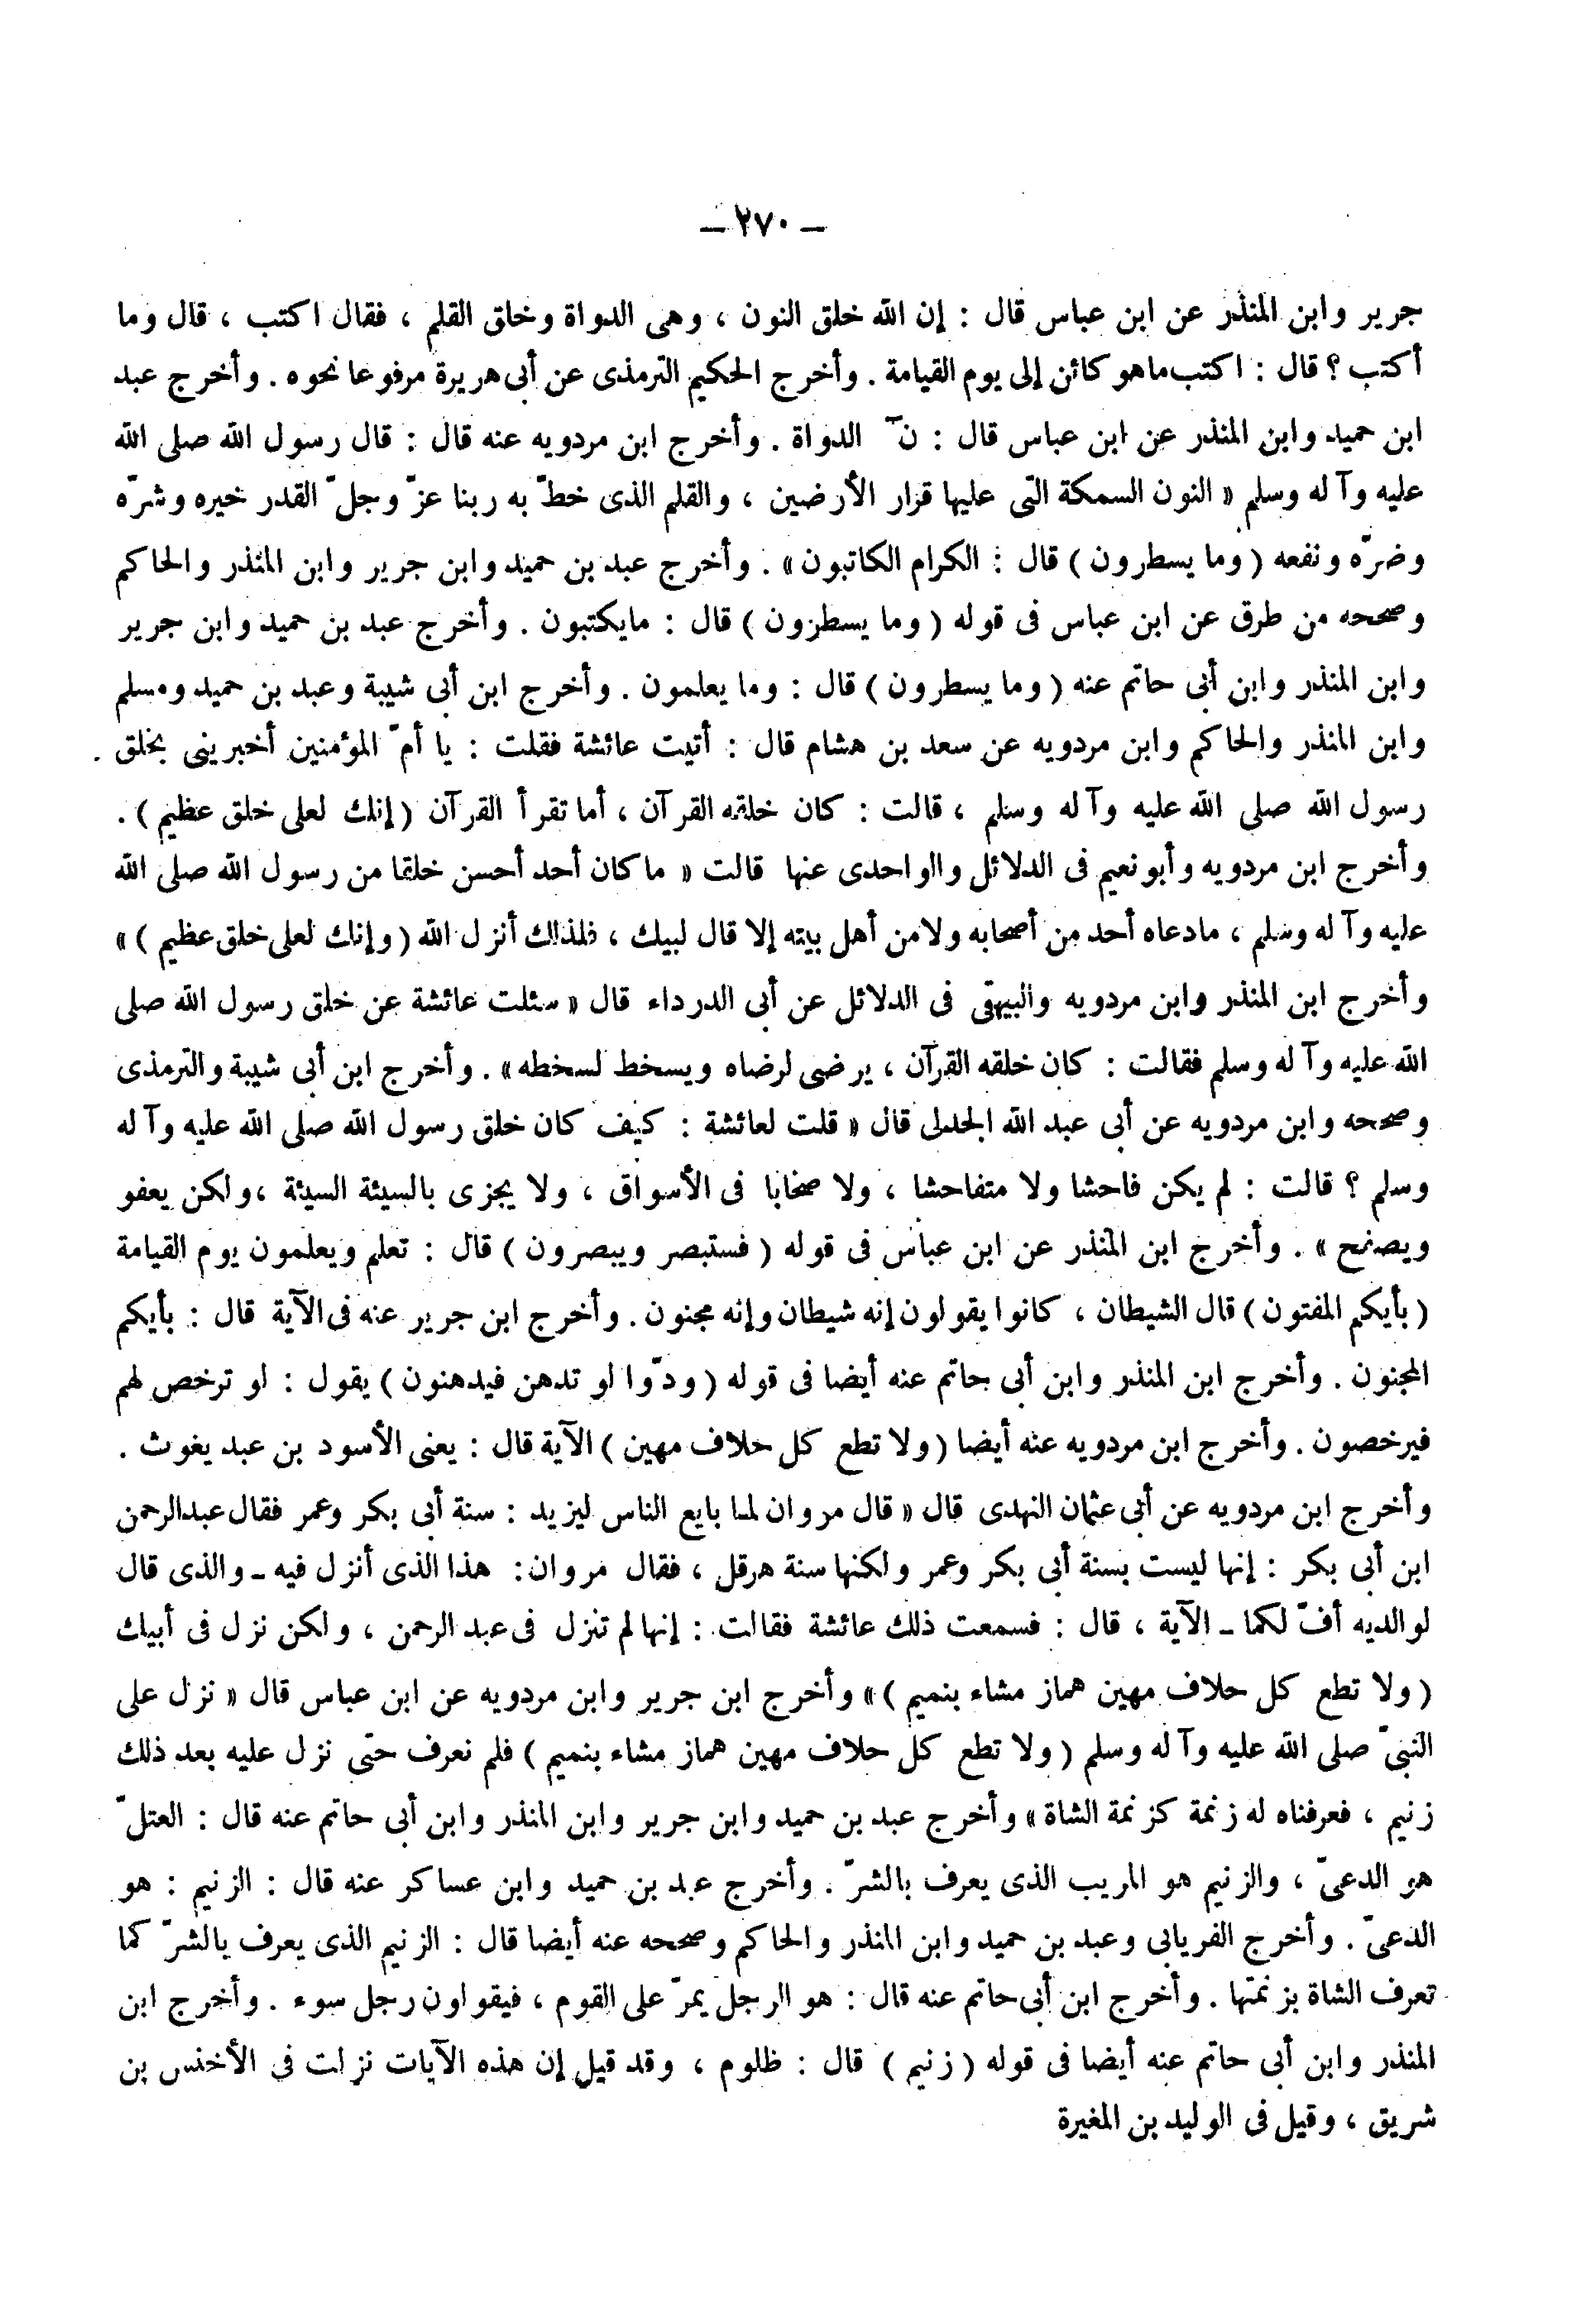 ـ ٢٧٠ ـ
جرير وابن المنذر عن ابن عباس قال : إن الله خلق النون ، وهى الدواة وخلق القلم ، فقال اكتب ، قال وما
أكتب ؟ قال : اكتب ماهو كائن إلى يوم القيامة . وأخرج الحكيم الترمذى عن أبى هريرة مرفوعا نحوه . وأخرج عبد
ابن حميد وابن المنذر عن ابن عباس قال : نۤ الدواة . وأخرج ابن مردويه عنه قال : قال رسول الله صلى الله
عليه وآله وسلم « النون السمكة التى عليها قرار الأرضين ، والقلم الذى خطّ به ربنا عزّ وجلّ القدر خيره وشرّه
وضرّه ونفعه ( وما يسطرون ) قال : الكرام الكاتبون » . وأخرج عبد بن حميد وابن جرير وابن المنذر والحاكم
وصححه من طرق عن ابن عباس فى قوله ( وما يسطرون ) قال : مايكتبون . وأخرج عبد بن حميد وابن جرير
وابن المنذر وابن أبى حاتم عنه ( وما يسطرون ) قال : وما يعلمون . وأخرج ابن أبى شيبة وعبد بن حميد ومسلم
وابن المنذر والحاكم وابن مردويه عن سعد بن هشام قال : أتيت عائشة فقلت : يا أمّ المؤمنين أخبرينى بخلق
رسول الله صلى الله عليه وآله وسلم ، قالت : كان خلقه القرآن ، أما تقرأ القرآن ( إنك لعلى خلق عظيم ) .
وأخرج ابن مردويه وأبونعيم فى الدلائل والواحدى عنها قالت « ماكان أحد أحسن خلقا من رسول الله صلى الله
عليه وآله وسلم ، مادعاه أحد من أصحابه ولامن أهل بيته إلا قال لبيك ، فلذلك أنزل الله ( وإنك لعلى خلق عظيم ) »
وأخرج ابن المنذر وابن مردويه والبيهقى فى الدلائل عن أبى الدرداء قال « سئلت عائشة عن خلق رسول الله صلى
الله عليه وآله وسلم فقالت : كان خلقه القرآن ، يرضى لرضاه ويسخط لسخطه » . وأخرج ابن أبى شيبة والترمذى
وصححه وابن مردويه عن أبى عبد الله الجدلى قال « قلت لعائشة : كيف كان خلق رسول الله صلى الله عليه وآله
وسلم ؟ قالت : لم يكن فاحشا ولا متفاحشا ، ولا صخابا فى الأسواق ، ولا يجزى بالسيئة السيئة ، ولكن يعفو
ويصفح » . وأخرج ابن المنذر عن ابن عباس فى قوله ( فستبصر ويبصرون ) قال : تعلم ويعلمون يوم القيامة
( بأيكم المفتون ) قال الشيطان ، كانوا يقولون إنه شيطان وإنه مجنون . وأخرج ابن جرير عنه فى الآية قال : بأيكم
المجنون . وأخرج ابن المنذر وابن أبى حاتم عنه أيضا فى قوله ( ودّوا لو تدهن فيدهنون ) يقول : لو ترخص لهم
فيرخصون . وأخرج ابن مردويه عنه أيضا ( ولا تطع كل حلاف مهين ) الآية قال : يعنى الأسود بن عبد يغوث .
وأخرج ابن مردويه عن أبى عثمان النهدى قال « قال مروان لما بايع الناس ليزيد : سنة أبى بكر وعمر فقال عبدالرحمن
ابن أبى بكر : إنها ليست بسنة أبى بكر وعمر ولكنها سنة هرقل ، فقال مروان : هذا الذى أنزل فيه ـ والذى قال
لوالديه أفّ لكما ـ الآية ، قال : فسمعت ذلك عائشة فقالت : إنها لم تنزل فى عبد الرحمن ، ولكن نزل فى أبيك
( ولا تطع كل حلاف مهين هماز مشاء بنميم ) » وأخرج ابن جرير وابن مردويه عن ابن عباس قال « نزل على
النبىّ صلى الله عليه وآله وسلم ( ولا تطع كل حلاف مهين هماز مشاء بنميم ) فلم نعرف حتى نزل عليه بعد ذلك
زنيم ، فعرفناه له زنمة كزنمة الشاة » وأخرج عبد بن حميد وابن جرير وابن المنذر وابن أبى حاتم عنه قال : العتلّ
هو الدعىّ ، والزنيم هو المريب الذى يعرف بالشرّ . وأخرج عبد بن حميد وابن عساكر عنه قال : الزنيم : هو
الدعىّ . وأخرج الفريابى وعبد بن حميد وابن المنذر والحاكم وصححه عنه أيضا قال : الزنيم الذى يعرف بالشرّ كما
تعرف الشاة بزنمتها . وأخرج ابن أبى حاتم عنه قال : هو الرجل يمرّ على القوم ، فيقولون رجل سوء . وأخرج ابن
المنذر وابن أبى حاتم عنه أيضا فى قوله ( زنيم ) قال : ظلوم ، وقد قيل إن هذه الآيات نزلت فى الأخنس بن
شريق ، وقيل فى الوليد بن المغيرة